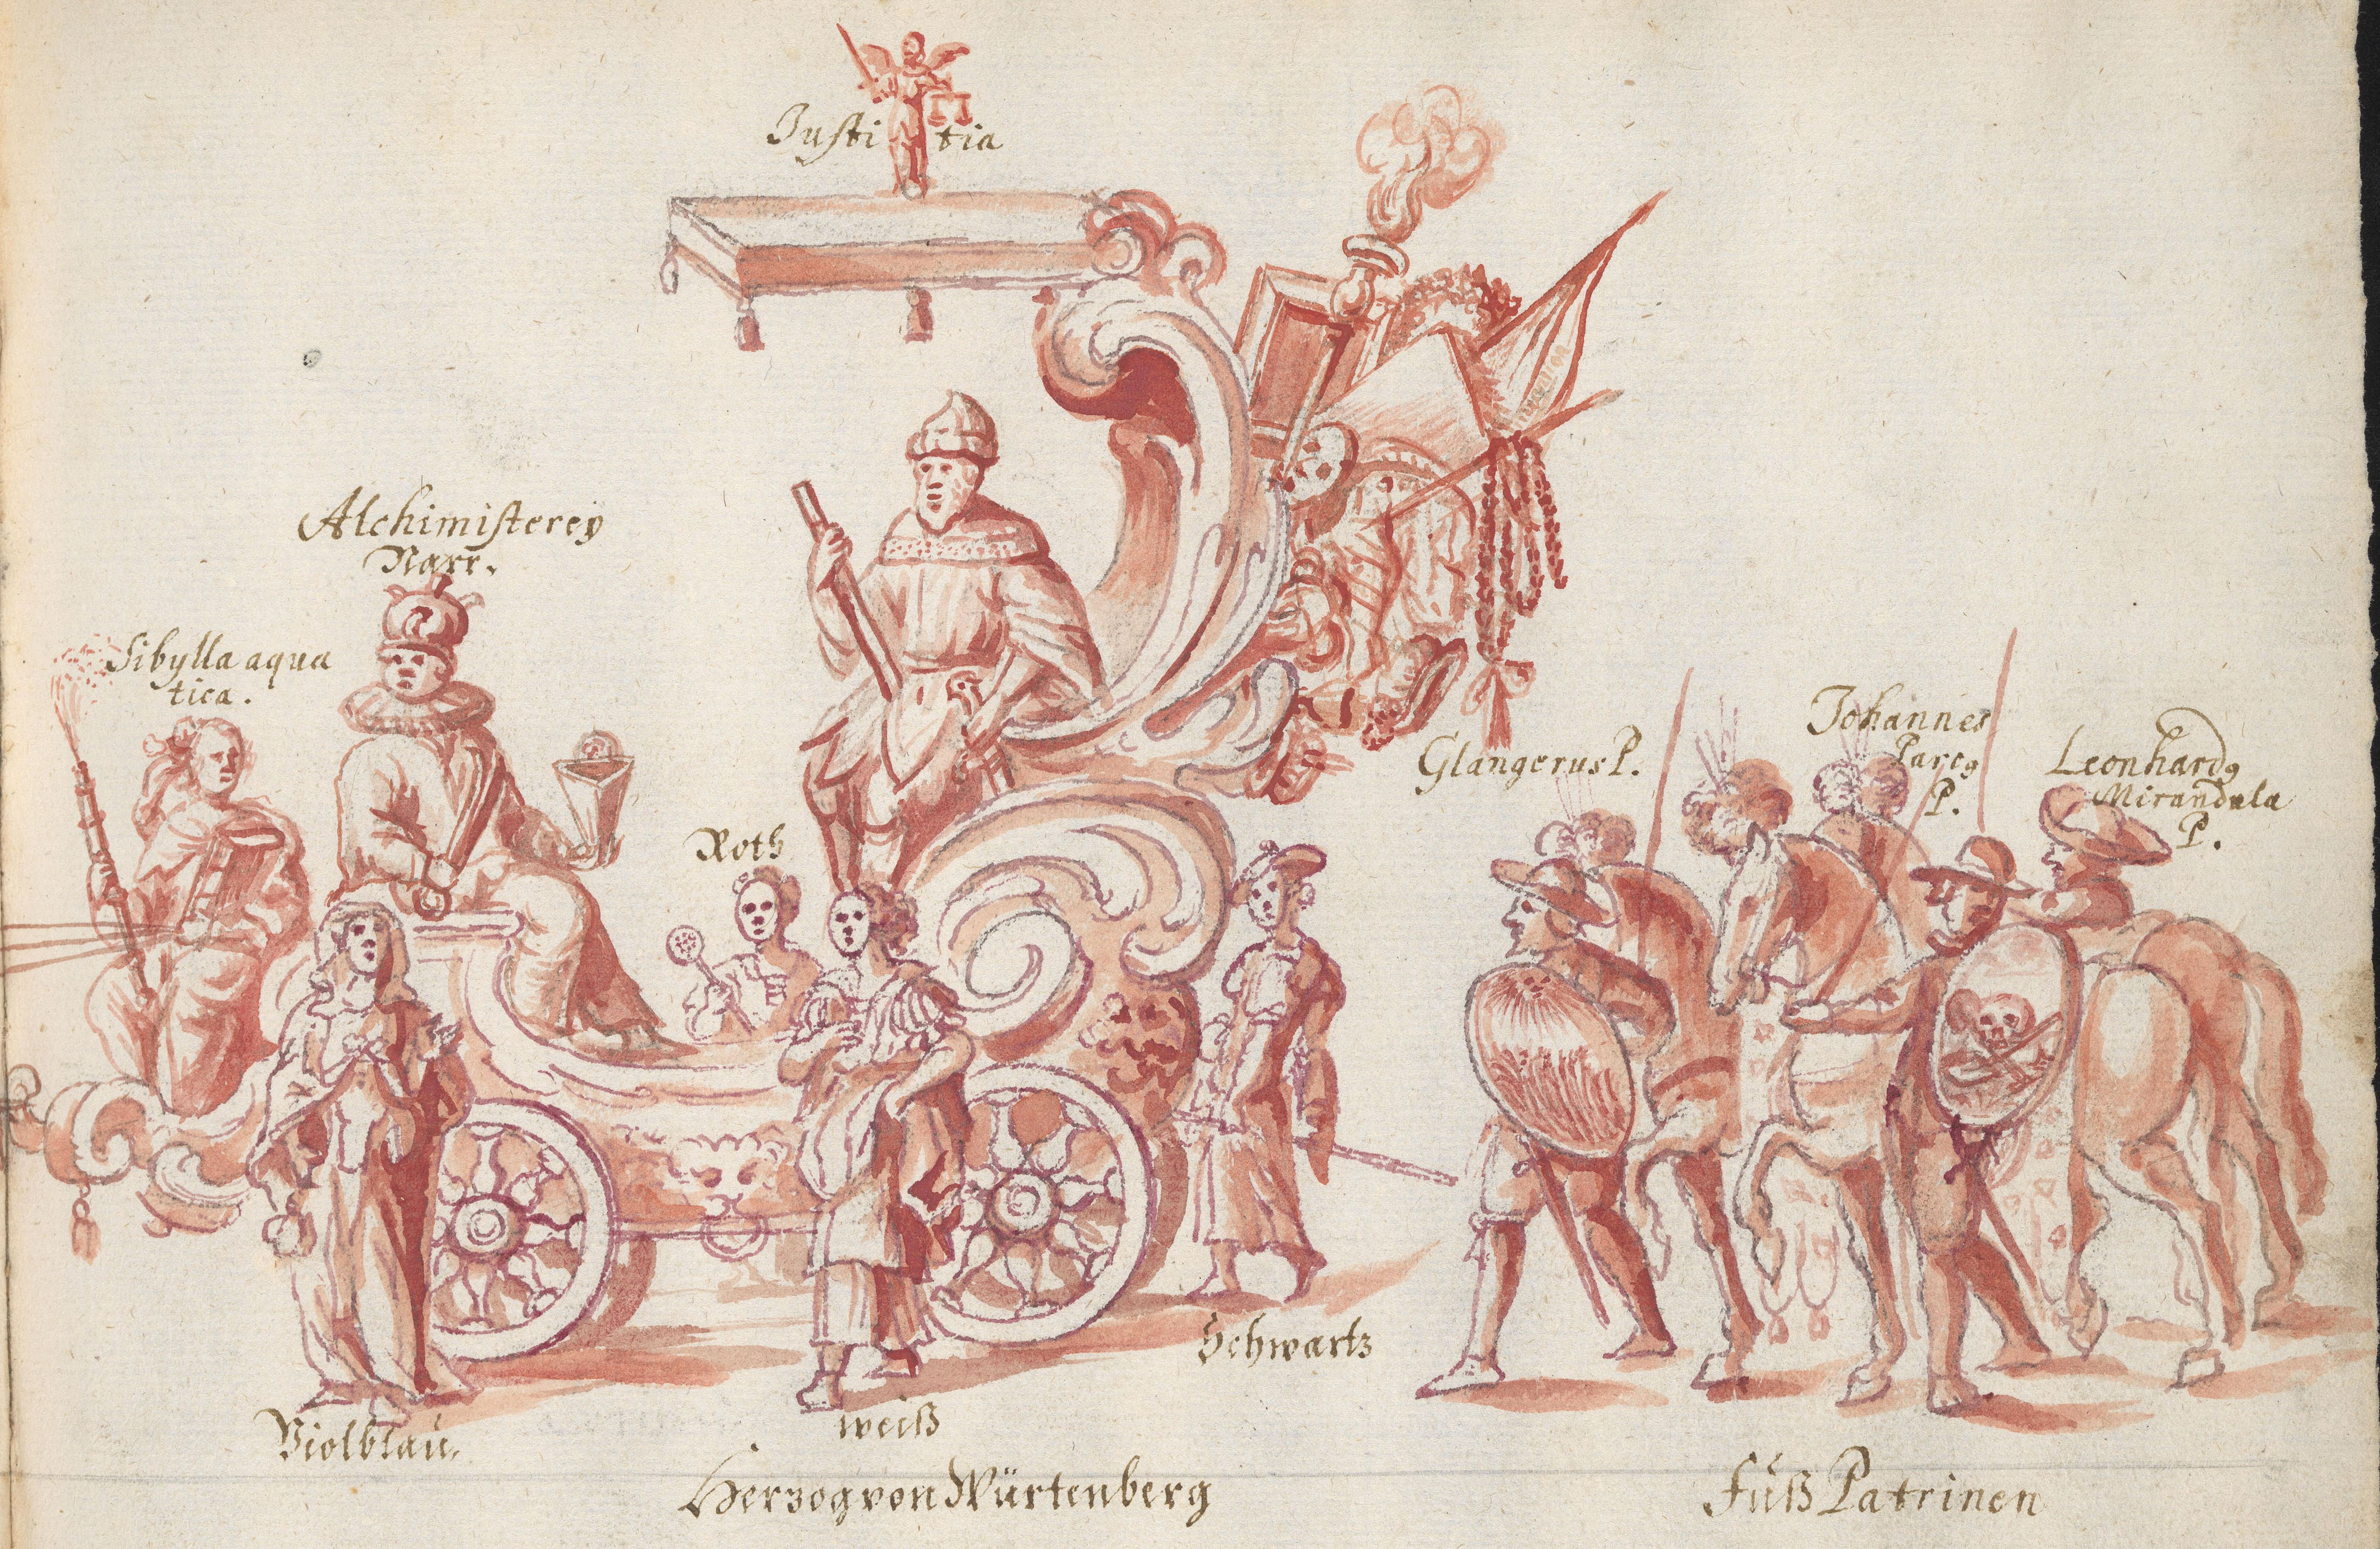 Justitia
Alchimisterey
Narr.
Sibylla aqua
tica.
Roth
Glangerus P.
Johannes
Parcꝰ
P.
Leonhardꝰ
Mirandula
P.
Schwartz
Violblau.
weiß
Herzog von Würtenberg
Fuß Patrinen